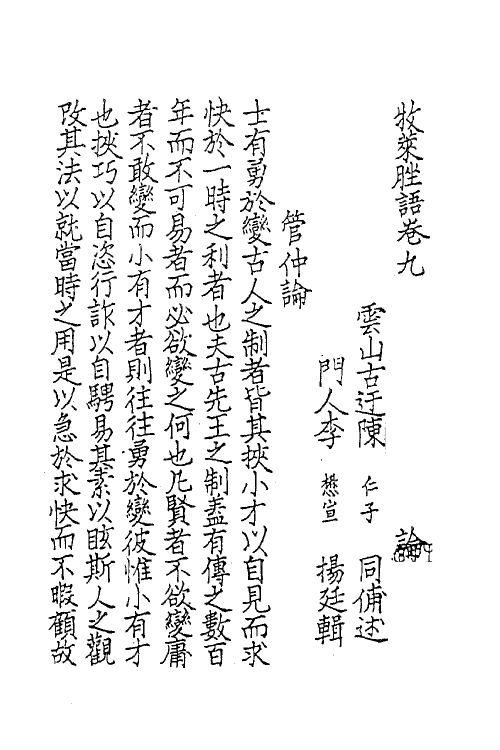 牧萊脞語卷九
雲山古迂陳 仁子 同俌述
門人李 懋宣 揚廷輯
論
管仲論
士有勇於變古人之制者皆其挾小才以自見而求
快於一時之利者也夫古先王之制蓋有傳之數百
年而不可易者而必欲變之何也凡賢者不欲變庸
者不敢變而小有才者則往往勇於變彼惟小有才
也挾巧以自恣行詐以自騁易其素以眩斯人之觀
改其法以就當時之用是以急於求快而不暇顧故